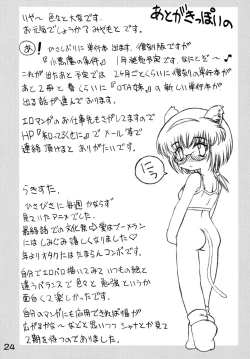 あとがきっぽいの
いや〜 色々と大変です。
お元気でしょうか？みやもとです。
あ！ ひさしぶりに単行本出ます。復刻版ですが
『小悪魔の事件』 1月発売予定です。なにとぞ〜♪
これが出たあと予定では 2ヶ月ごとくらいに復刻の単行本が
あと2冊と 春くらいに『OTA妹』の新しい単行本が
出る話が進んでおります。
エロマンガのお仕事もさがしてますので
でメール等で
連絡頂けると ありがたいです。
にっ
らきすた。
ひさびさに毎週かならず
見ていたアニメでした。
最終話での文化祭 愛はブーメラン
にはしみじみ嬉しくなりました♡
年よりオタクにはたまらんコンボです。
自分でエロパロ描いてみて いつもの絵と
違うバランスで色々と勉強というか
面白くて楽しかったです。
自分のマンガにも応用できれば幅が
広がるかな〜などと思いつつ シャナとか見て
2期を待つのでありました。
24